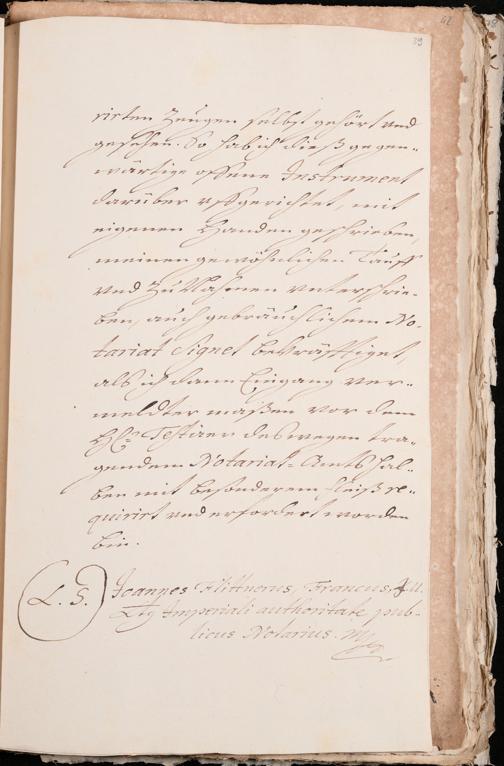 42
39
rirten Zeugen selbst gehört und
gesehen. So hab ich dieß gegen-
wärtige offene Instrument
darüber uffgerichtet, mit
eigenen Handen geschrieben,
meinen gewöhnlichen Tauff
und ZuNahmen unterschrie-
ben, auch gebräuchlichem No-
tariat Signet bekräfftiget,
als ich dann Eingang ver-
meldter maßen vor dem
Testierer deswegen tra-
gendem Notariat-Ambts hal-
ben mit besonderem fleiß re-
quirirt und erfordert worden
bin.
L. S.
Joannes Flittnerus, Francus,
Imperiali authoritate pub-
licus Notarius.